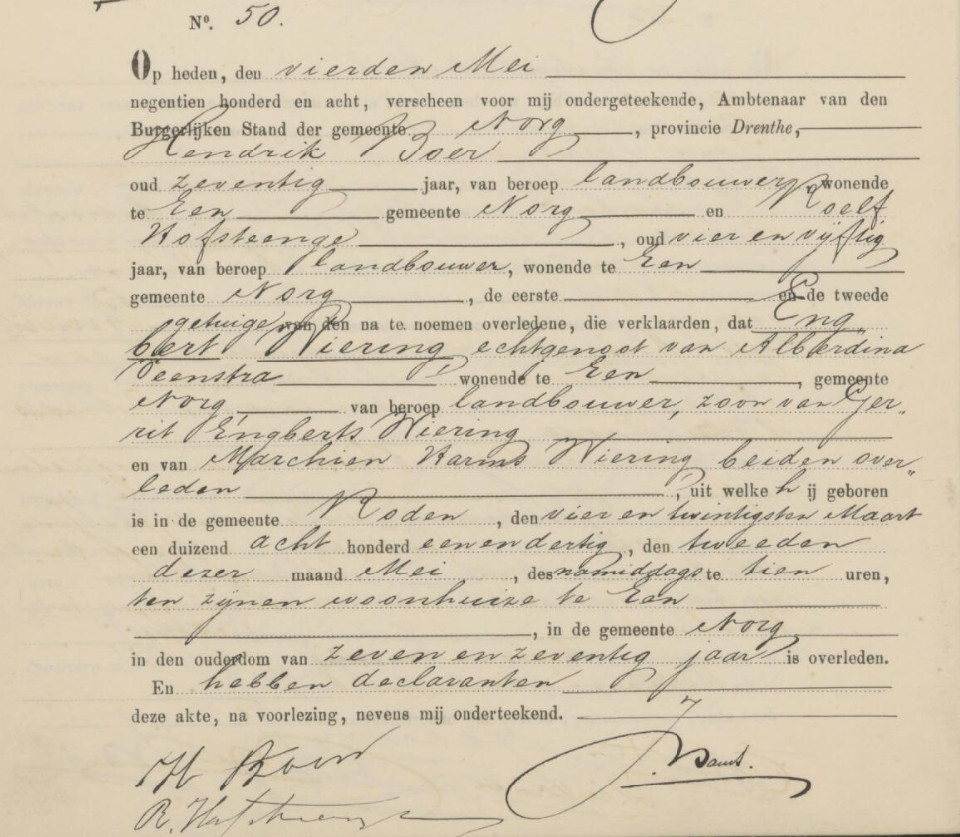 No. 50.
Op heden, den vierden Mei
negentien honderd en acht, verscheen voor mij ondergeteekende, Ambtenaar van den
Burgerlijken Stand der gemeente Norg, provincie Drenthe,
Hendrik Boer
oud zeventig jaar, van beroep landbouwer, wonende
te Een gemeente Norg en Roelf
Hofsteenge, oud vier en vijftig
jaar, van beroep landbouwer, wonende te Een
gemeente Norg, de eerste en de tweede
getuige van den na te noemen overledene, die verklaarden, dat Eng„
bert Wiering, echtgenoot van Alberdina
Veenstra wonende te Een, gemeente
Norg, van beroep landbouwer, zoon van Ger„
rit Engberts Wiering
en van Marchien Harms Wiering beiden over„
leden, uit welke hij geboren
is in de gemeente Roden, den vier en twintigsten Maart
een duizend acht honderd een en dertig, den tweeden
dezer maand Mei, des namiddags te tien uren,
ten zijnen woonhuize te Een
, in de gemeente Norg
in den ouderdom van zeven en zeventig jaar is overleden.
En hebben declaranten
deze akte, na voorlezing, nevens mij onderteekend.
H Boer
R. Hofsteenge